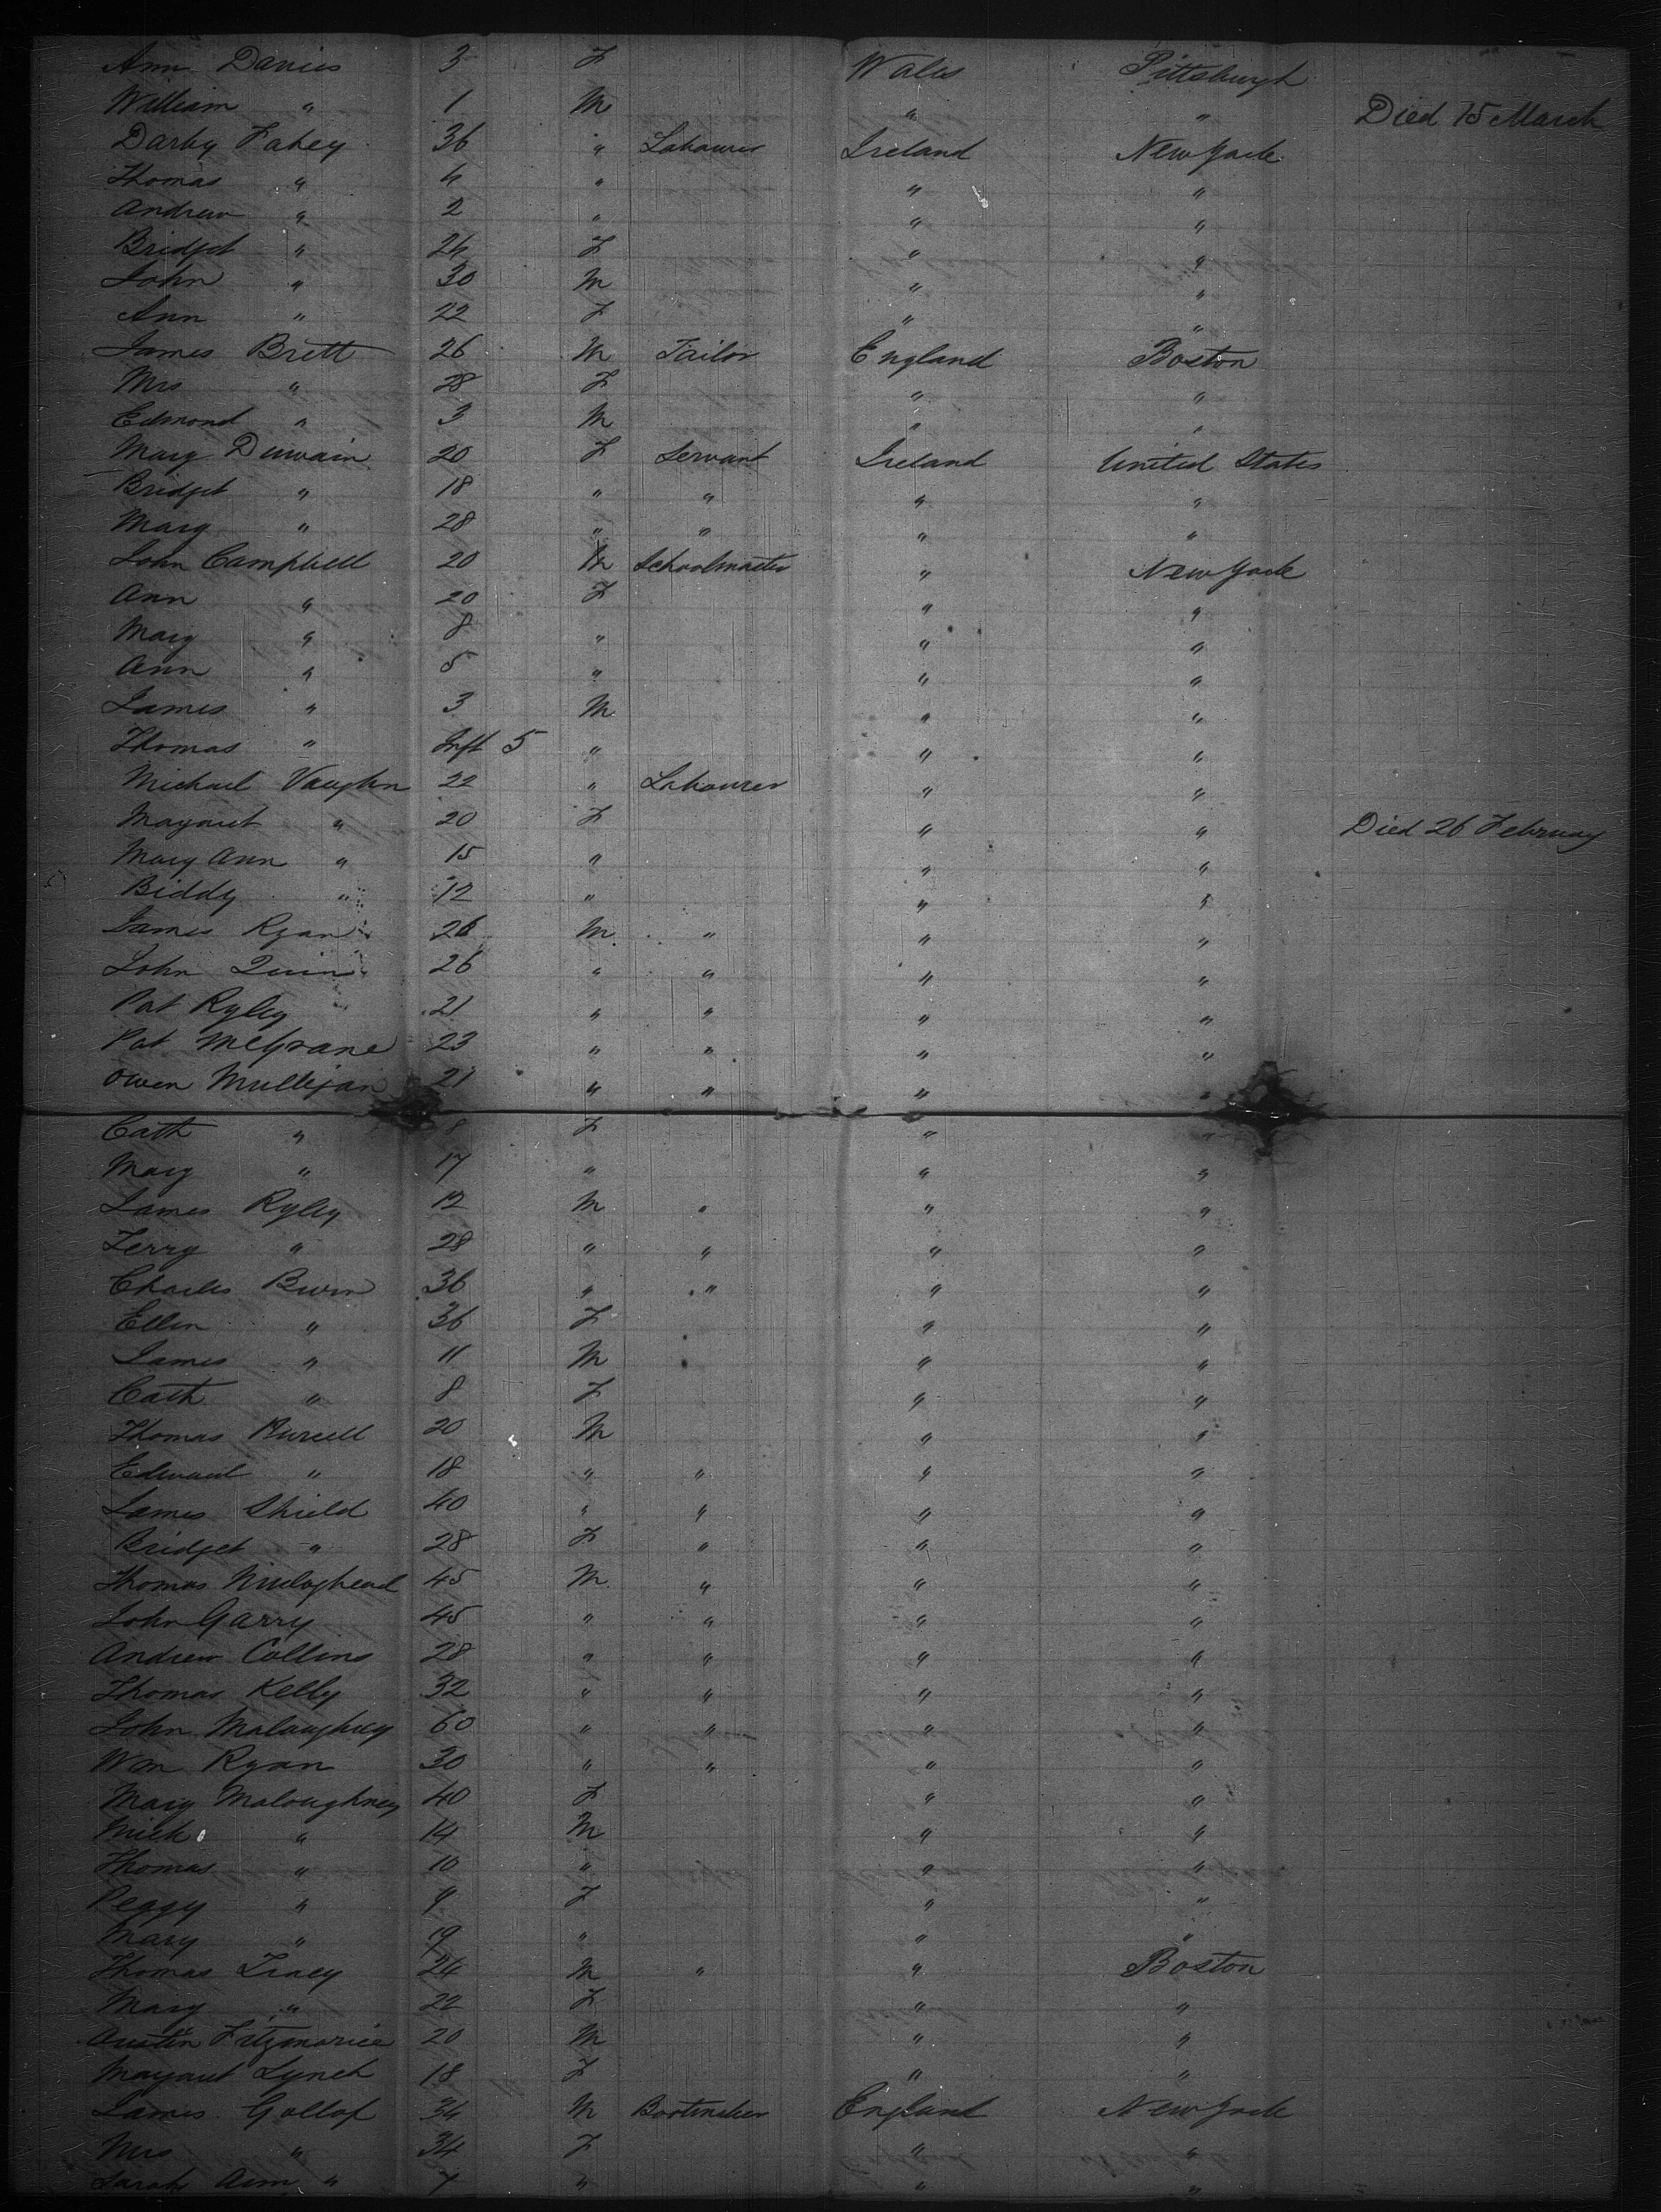 Ann Davies 3 F Wales Pittsburgh
William " 1 M " " Died 15 March
Darby Fahey 36 " Labourer Ireland New York
Thomas " 4 " " "
Andrew " 2 " " "
Bridget " 24 F " "
John " 30 M " "
Ann " 22 F " "
James Brett 26 M Tailor England Boston
Mrs " 28 F " "
Edmond " 3 M " "
Mary 20 F Servant Ireland United States
Bridget " 18 " " " "
Mary " 28 " " " "
John Campbell 20 M Schoolmaster " New York
Ann " 20 F " "
Mary " 8 " " "
Ann " 5 " " "
James " 3 M " "
Thomas " Inft 5 " " "
Michael Vaughn 22 " Labourer " "
Margaret " 20 F " " Died 26 February
Mary Ann " 15 " " "
Biddy " 12 " " "
James Ryan 26 M " " "
John Quin 26 " " " "
Pat Ryley 21 " " " "
Pat McGrane 23 " " " "
Owen Mulligan 21 " " " "
Cath " 8 F " "
Mary " 17 " " "
James Ryley 12 M " " "
Terry " 28 " " " "
Charles Burn 36 " " " "
Ellen " 36 F " "
James " 11 M " "
Cath " 8 F " "
Thomas Purcell 20 M " "
Edward " 18 " " " "
James Shield 40 " " " "
Bridget " 28 F " " "
Thomas 45 M " " "
John Garry 45 " " " "
Andrew Collins 28 " " " "
Thomas Kelly 32 " " " "
John Maloughney 60 " " " "
Wm Ryan 30 " " " "
Mary Maloughney 40 F " "
Mick " 14 M " "
Thomas " 10 " " "
Peggy " 9 F " "
Mary " 19 " " "
Thomas Tracy 24 M " " Boston
Mary " 22 F " "
Austin Fitzmorice 20 M " "
Margaret Lynch 18 F " "
James Gollof 34 M Bootmaker England New York
Mrs " 34 F " "
Sarah Ann " 7 " " "